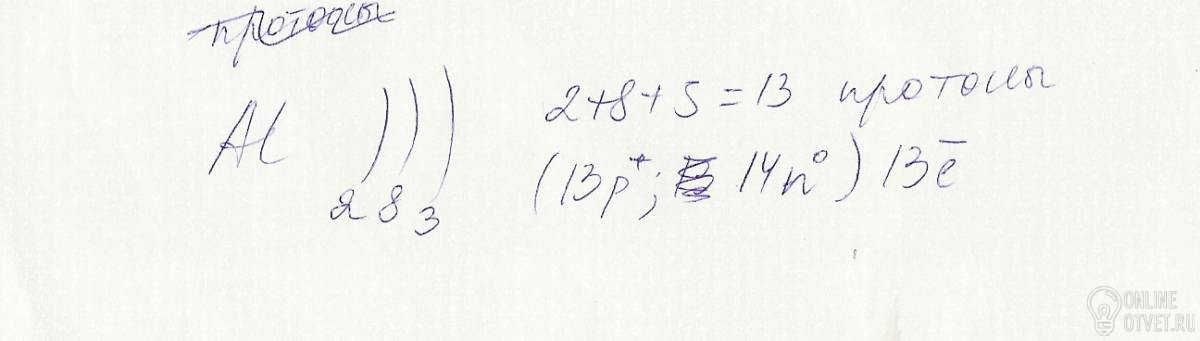 протоны
Al ))) 2+8+5=13 протоны
2 8 3 (13p⁺; 14n⁰) 13e̅
ONLINE
OTVET.RU